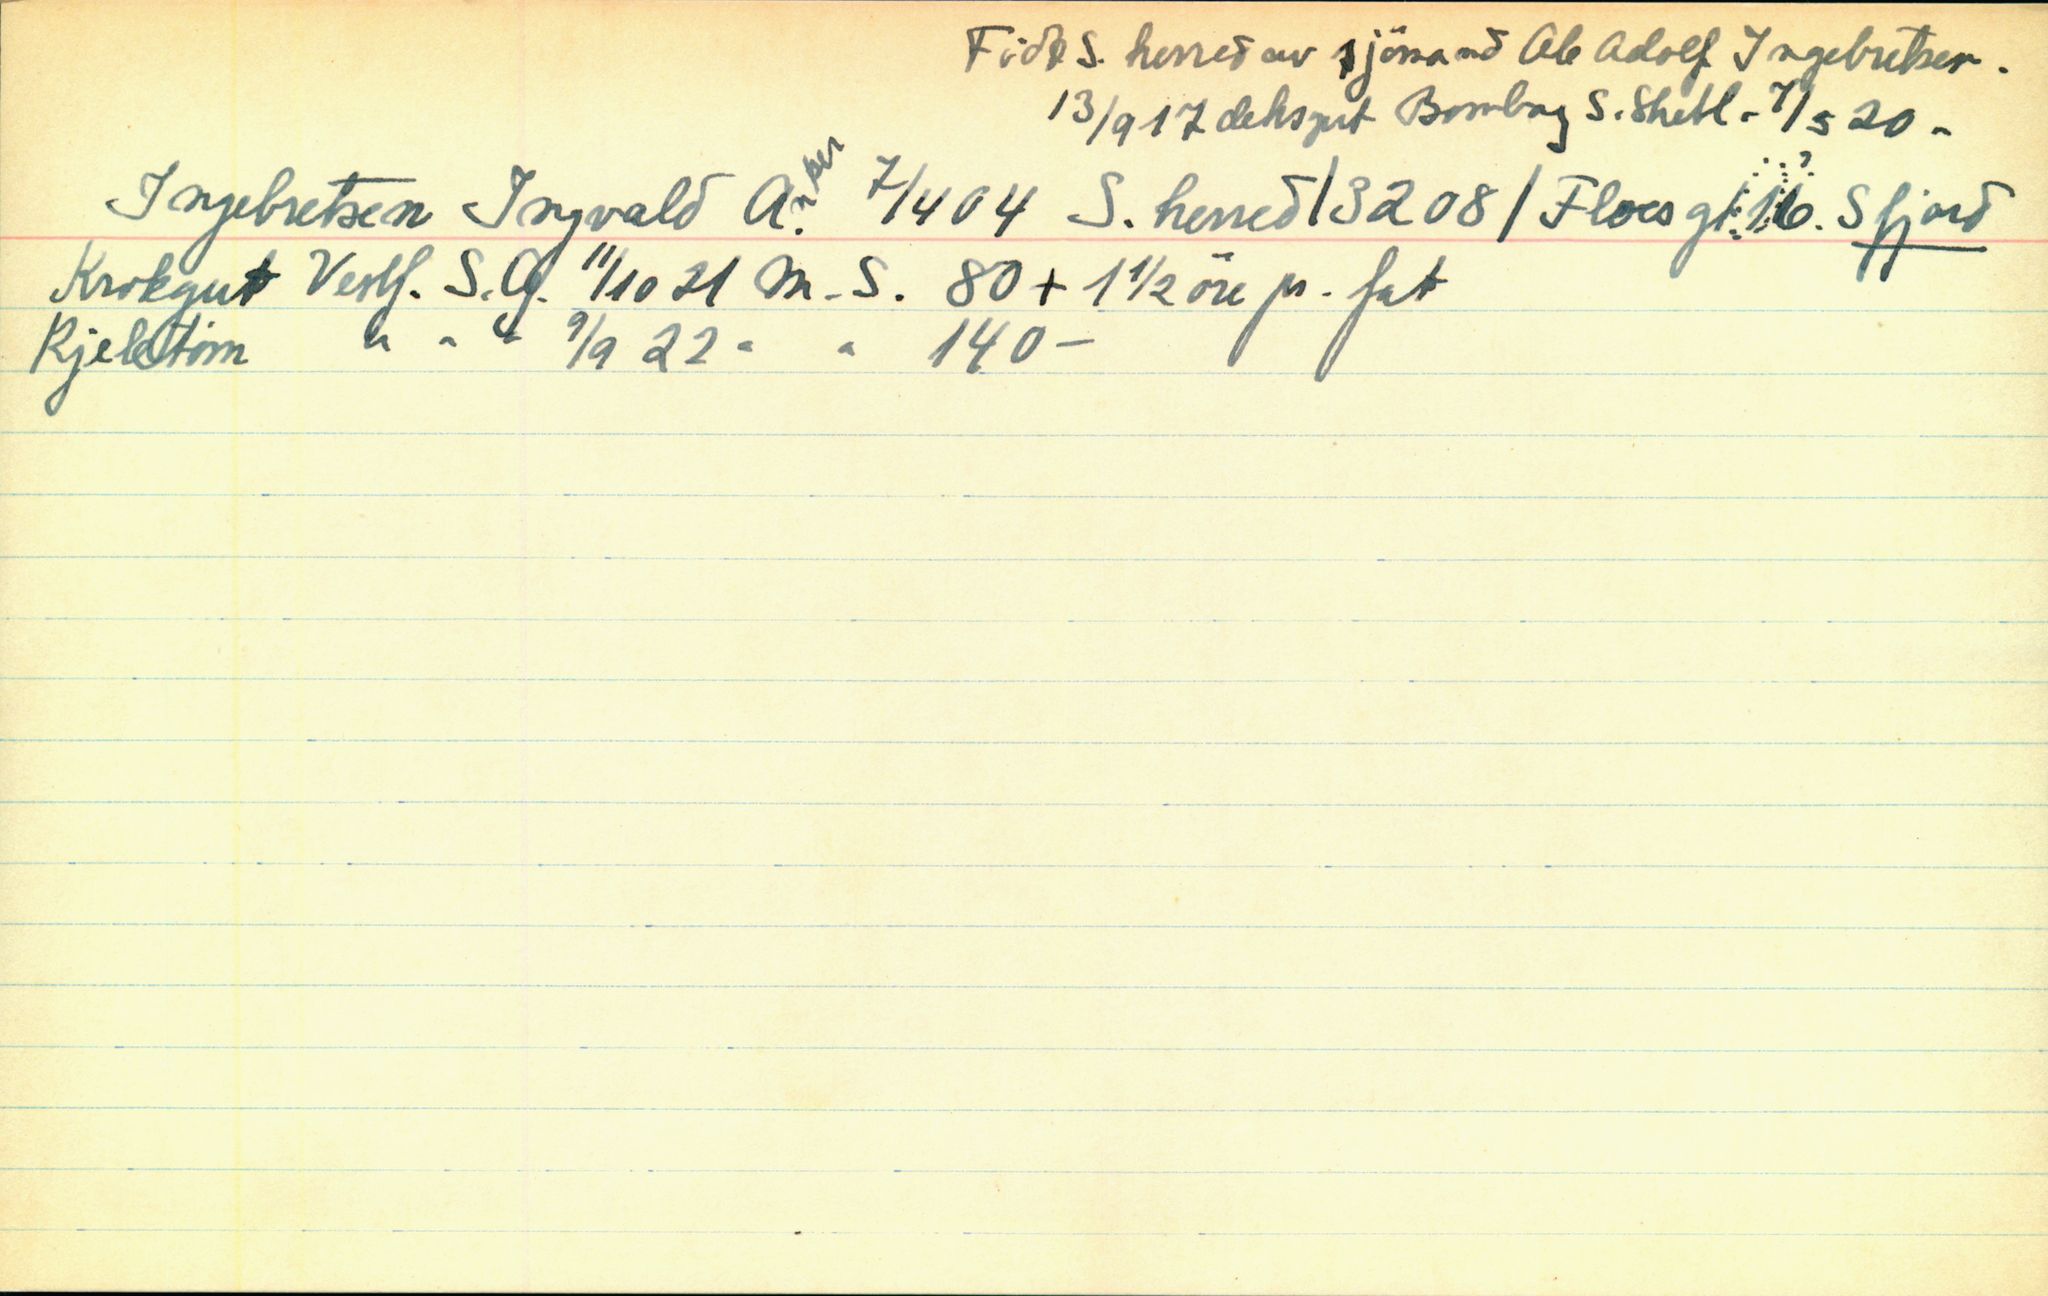 Födt S. herred av sjömand Ole Adolf Ingebretsen.
13/9 17 deksgut Bombay S. Shetl. - 7/5 20 -
Ingebretsen Ingvald Anker 7/4 04 S. herred /3208/ Floes gt. 16. Sfjord
Krokgut Vestf. S.G. 11/10 21 M.S. 80 + 1 1/2 öre pr. fat
Kjeletöm " " " 9/9 22 " " 140 -